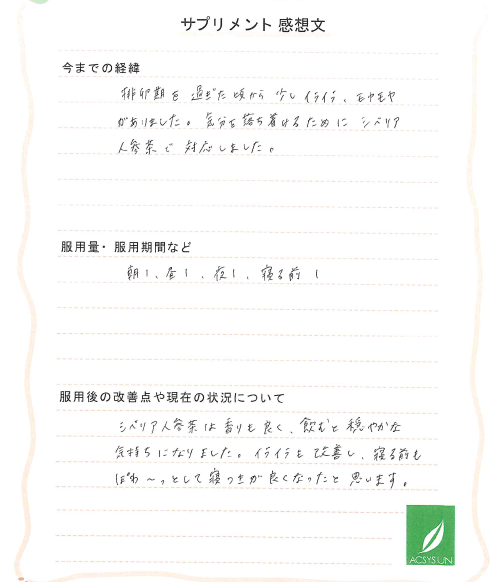 サプリメント 感想文
今までの経緯
排卵期を過ぎた頃から少しイライラ、モヤモヤ
がありました。気分を落ち着けるためにシベリア
人参茶で対応しました。
服用量・服用期間など
朝1、昼1、夜1、寝る前1
服用後の改善点や現在の状況について
シベリア人参茶は香りも良く、飲むと穏やかな
気持ちになりました。イライラも改善し、寝る前も
ぽわ〜っとして寝つきが良くなったと思います。
ACSYSUN